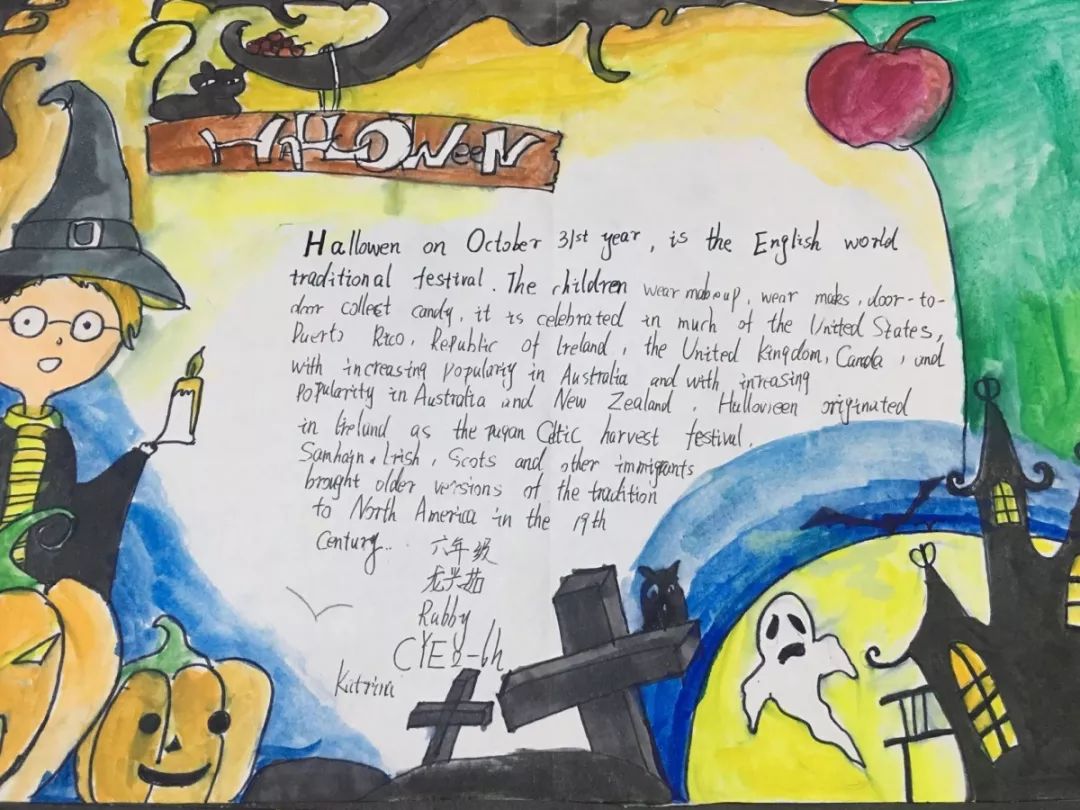 HALLOWeeN
Hallowen on October 31st year, is the English world
traditional festival. The children wear makeup, wear maks, door-to-
door collect candy, it is celebrated in much of the United States,
Puerto Rico, Republic of Ireland, the United Kingdom, Canda, and
with increasing popularity in Australia and with incresing
Popularity in Australia and New Zealand. Halloween originated
in Ireland as the pagan Celtic harvest festival.
Samhain. Irish, Scots and other immigrants
brought older versions of the tradition
to North America in the 19th
Century..
六年级
龙兴茹
Rabby
Katrina